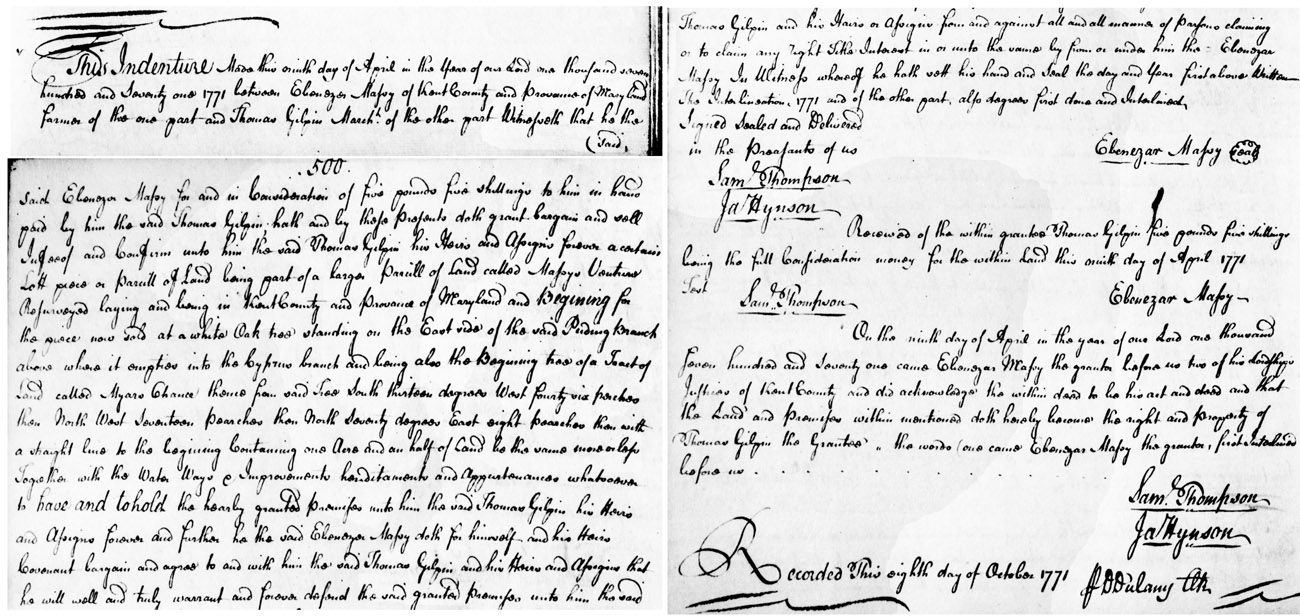 This Indenture Made this ninth day of April in the Year of our Lord one thousand seven
hundred and Seventy one 1771 between Ebenezer Massy of Kent County and Provance of Mary Land
Farmer of the one part and Thomas Gilpin March.t of the other part Witnesseth that he the
(Said,
500
said Ebenezer Massy for and in Consideration of five pounds five shillings to him in hand
paid by him the said Thomas Gilpin hath and by these Presents doth grant bargain and sell
Infeof and Confirm unto him the said Thomas Gilpin his Heirs and Assigns forever a certain
Lott piece or Parrill of Land being part of a larger Parrill of Land called Massys Venture
Resurveyed laying and being in Kent County and Provance of Maryland and Begining for
the piece now sold at a white Oak tree standing on the East side of the said Riding Branch
above where it empties into the Cyprus branch and being also the Begining tree of a Tract of
Land called Myars Chance thence from said Tree South thirteen degrees West fourty six perches
then North West Seventeen pearches then North Seventy degrees East eight pearches then with
a straight line to the begining Containing one Acre and an half of Land be the same more or less
Together with the Water Ways & Improvements hereditaments and Appurtenances whatsoever
to have and to hold the hearby granted Premises unto him the said Thomas Gilpin his Heirs
and Assigns forever and further he the said Ebenezer Massy doth for himself and his Heirs
Covenant bargain and agree to and with him the said Thomas Gilpin and his Heirs and Assigns that
he will well and truly warrant and forever defend the said granted Premises unto him the said
Thomas Gilpin and his Heirs or Assigns from and against all and all manner of Parsons claiming
or to claim any right Title Interest in or unto the same by from or under him the = Ebenezar
Massy In Witness whereof he hath sett his hand and Seal the day and Year first above Written
The Interlineation, 1771 and of the other part, also degrees first done and Interlined,
Signed Sealed and Delivered
in the Preasants of us
Ebenezar Massy Seal
Sam.l Thompson
Ja.s Hynson
Received of the within grantee Thomas Gilpin five pounds five shillings
being the full Consideration money for the within Land this ninth day of April 1771
Test
Sam.l Thompson
Ebenezar Massy
On the ninth day of April in the year of our Lord one thousand
seven hundred and seventy one came Ebenezar Massy the grantor before us two of his Lordships
Justices of Kent County and did acknowledge the within deed to be his act and deed and that
the Land and Premises within mentioned doth hereby become the right and Property of
Thomas Gilpin the Grantee „ the words (one came Ebenezar Massy the grantor, first Interlined
before us.
Sam.l Thompson
Ja.s Hynson
Recorded This eighth day of October 1771
Dulany Clk